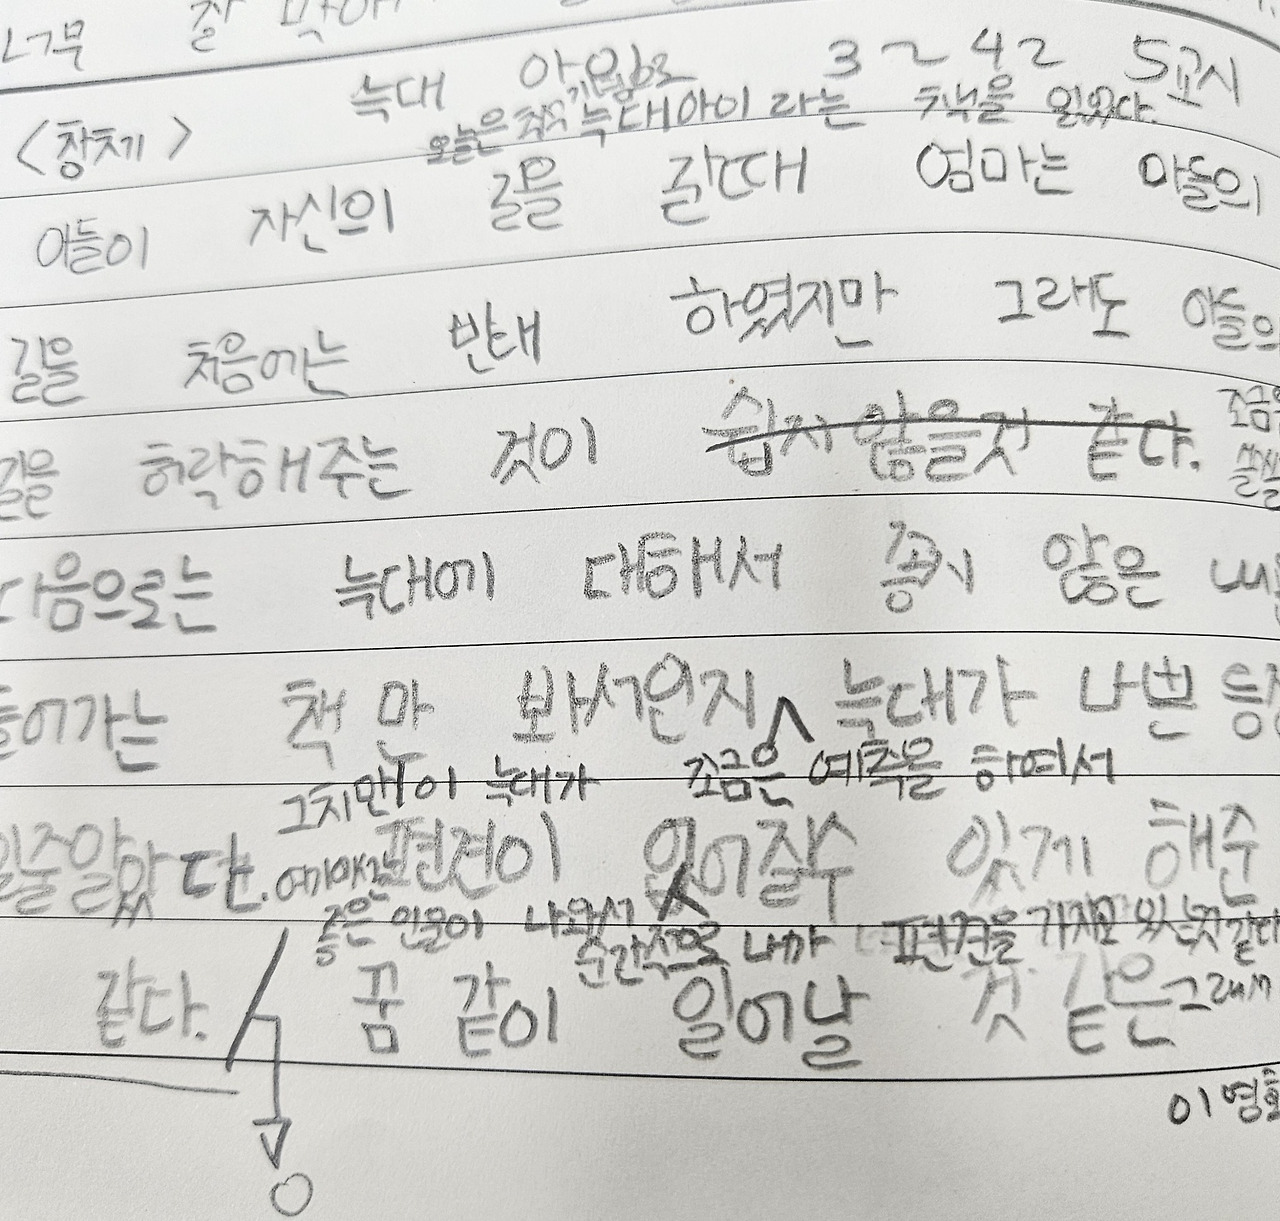 너무 잘
늑대 아이 3 ~ 42 5교시
<창체>
오늘은 늑대아이 라는 책을 읽었다.
아들이 자신의 길을 갈때 엄마는 아들의
길을 처음에는 반대 하였지만 그래도 아들의
길을 허락해주는 것이 쉽지 않을것 같다. 조금은
쓸쓸
다음으로는 늑대에 대해서 좋지 않은
들어가는 책 만 봐서인지 늑대가 나쁜
그치만 이 늑대가 조금은 예측을 하여서
인줄알았다. 편견이 없어질수 있게 해준
좋은 인물이 나와서
순간적으로 내가 편견을 가지고 있는것 같다
같다. 꿈 같이 일어날 것 같은 그래서
이 영화